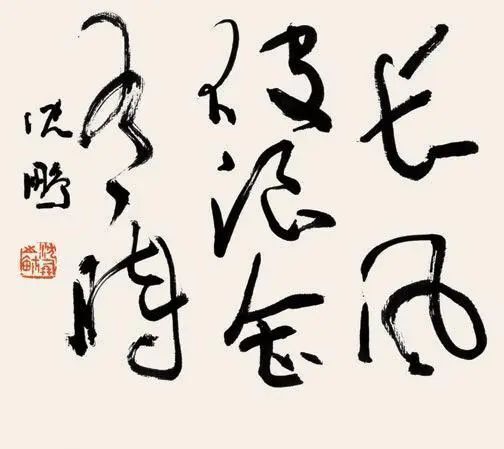 长风
破浪会
有时
沈鹏